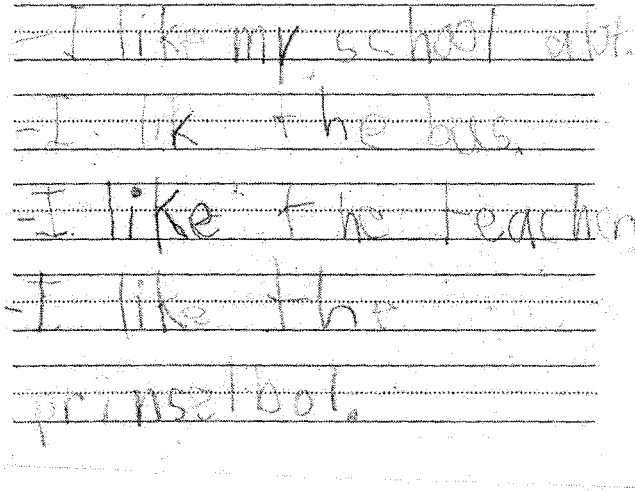 -I like my school alot.
-I lik the bus.
-I like the teacher
-I like the
prinselbol.